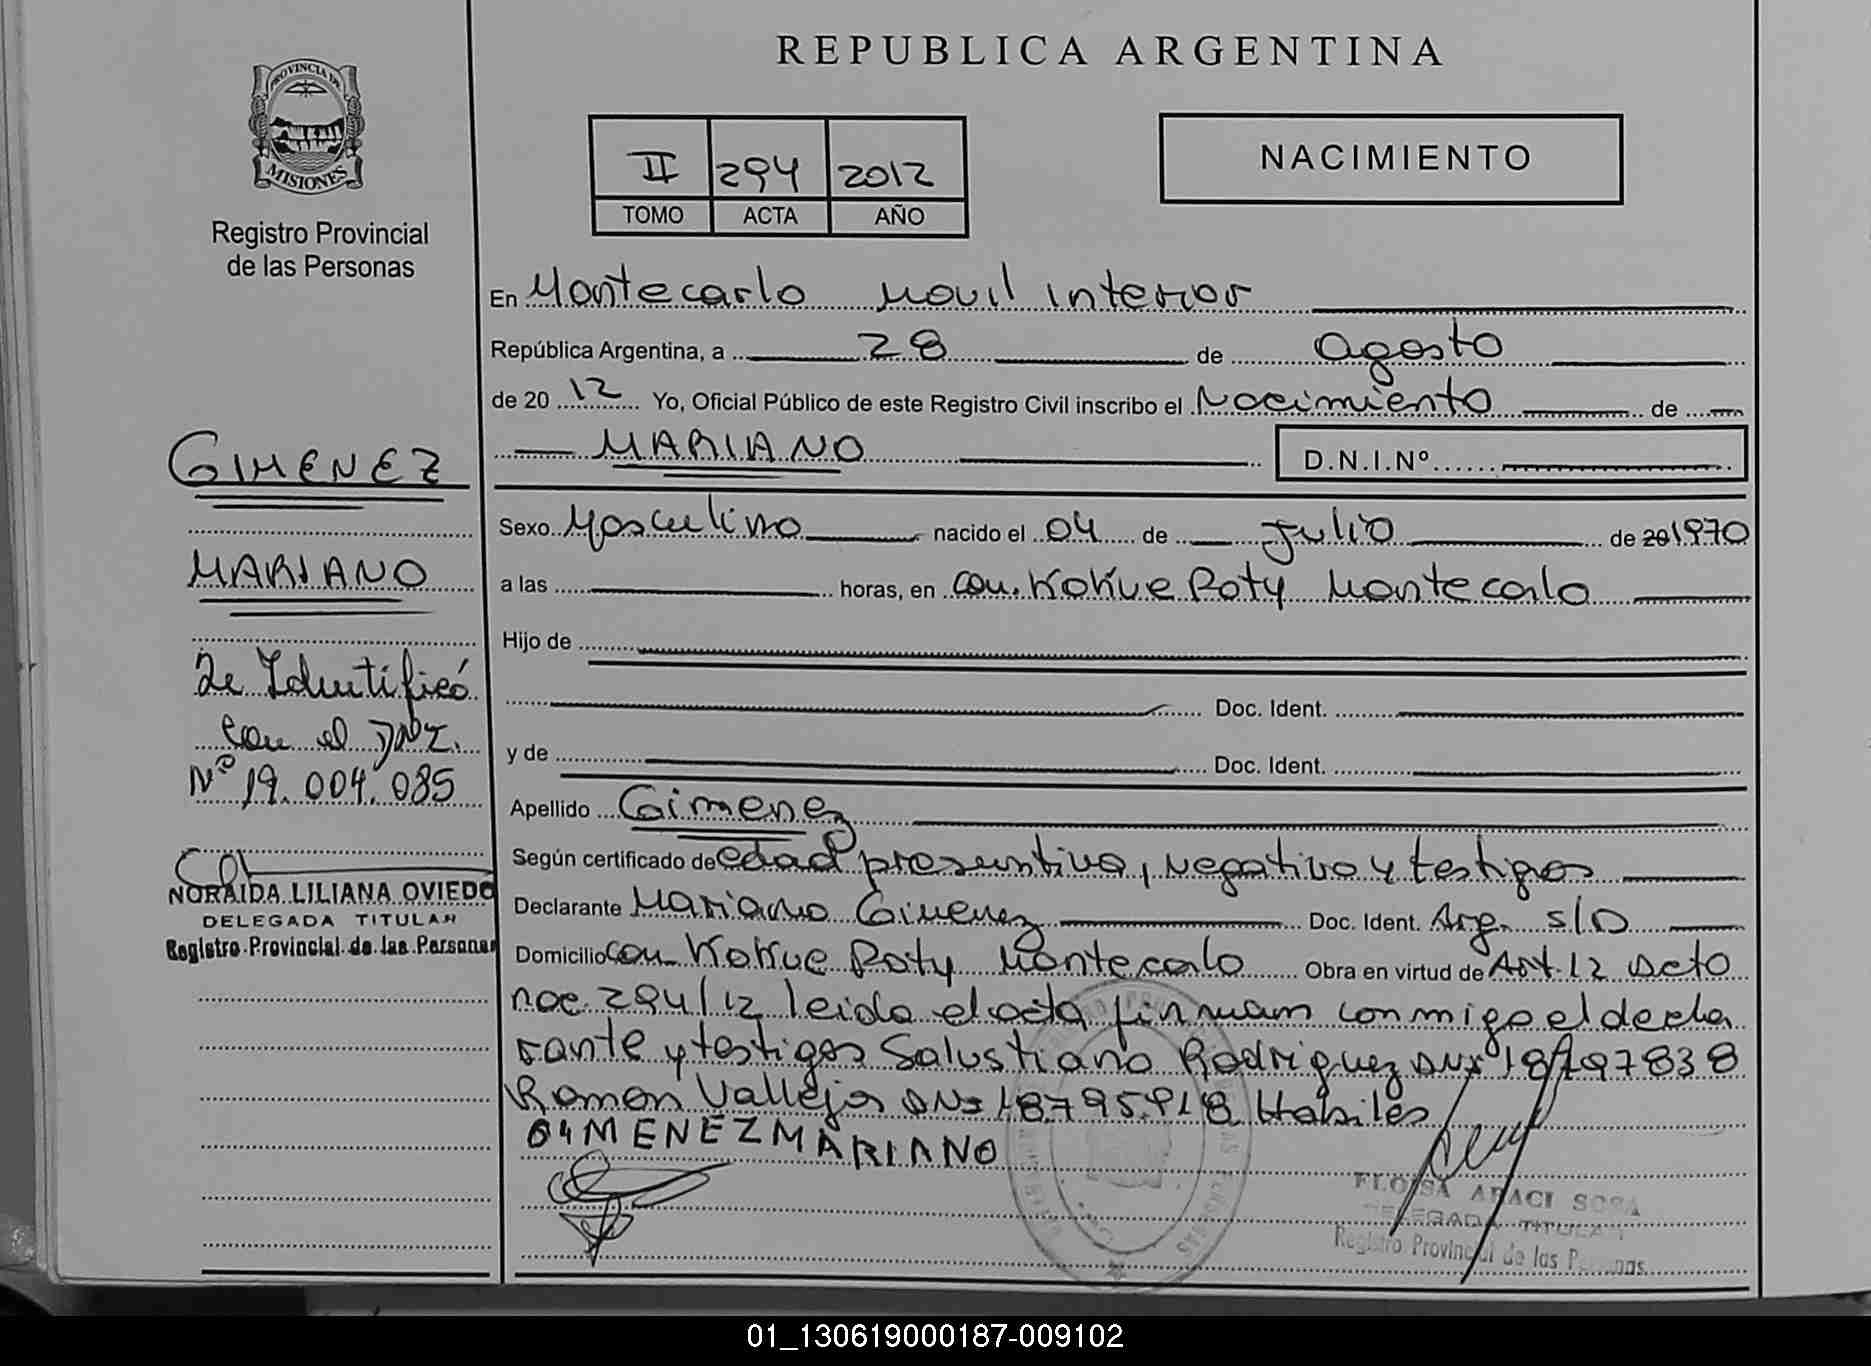 REPUBLICA ARGENTINA
PROVINCIA DE
MISIONES
Registro Provincial
de las Personas
II 294 2012
TOMO ACTA AÑO
NACIMIENTO
En Montecarlo Movil interior
República Argentina, a 28 de agosto
de 20 12 Yo, Oficial Público de este Registro Civil inscribo el Nacimiento de
MARIANO D.N.I.Nº
Sexo Masculino nacido el 04 de Julio de 20 1970
a las horas, en com. Kokue Poty Montecarlo
Hijo de
Doc. Ident.
y de Doc. Ident.
Apellido Gimenez
Según certificado de edad presuntiva, negativo y testigos
Declarante Mariano Gimenez Doc. Ident. Arg. s/D
Domicilio com. Kokue Poty Montecarlo Obra en virtud de Art. 12 Dcto
nac. 294/12 leida el acta firman conmigo el decla
rante y testigos Salustiano Rodriguez DNI 18797838
Ramon Vallejos DNI 18.795.918 Habiles
GIMENEZ MARIANO
ELOISA ARACI SOSA
DELEGADA TITULAR
Registro Provincial de las Personas
GIMENEZ
MARIANO
Se Identificó
con el DNI.
Nº 19.004.085
NORAIDA LILIANA OVIEDO
DELEGADA TITULAR
Registro Provincial de las Personas
01_130619000187-009102